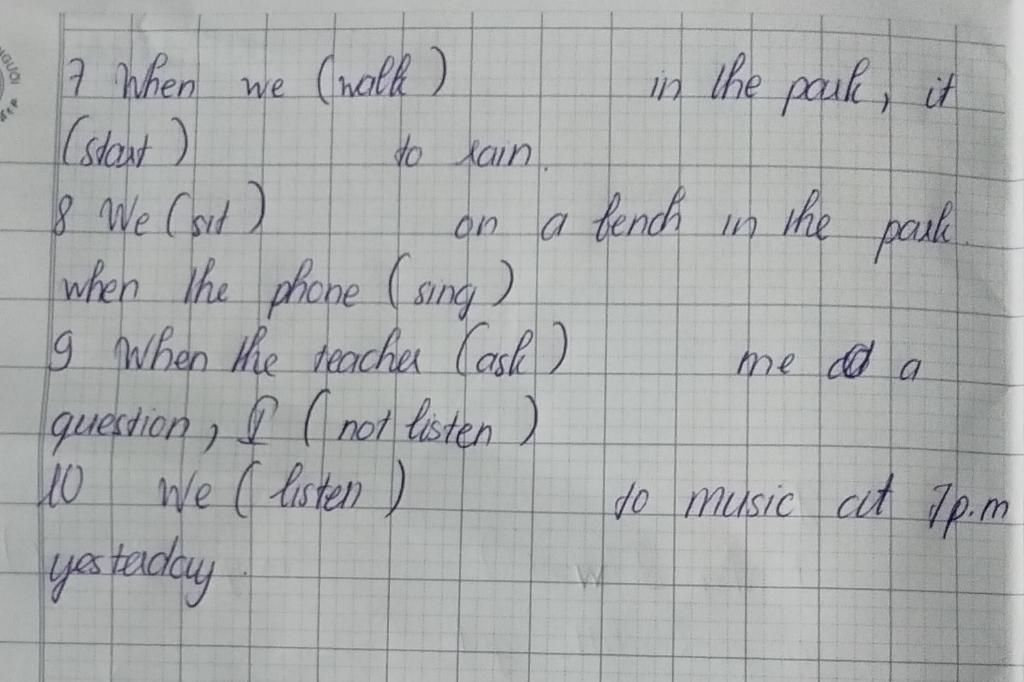 7 When we (walk) in the park, it
(start) to rain.
8 We (sit) on a bench in the park
when the phone (sing)
9 When the teacher (ask) me a
question, I (not listen)
10 We (listen) to music at 7p.m
yesterday.